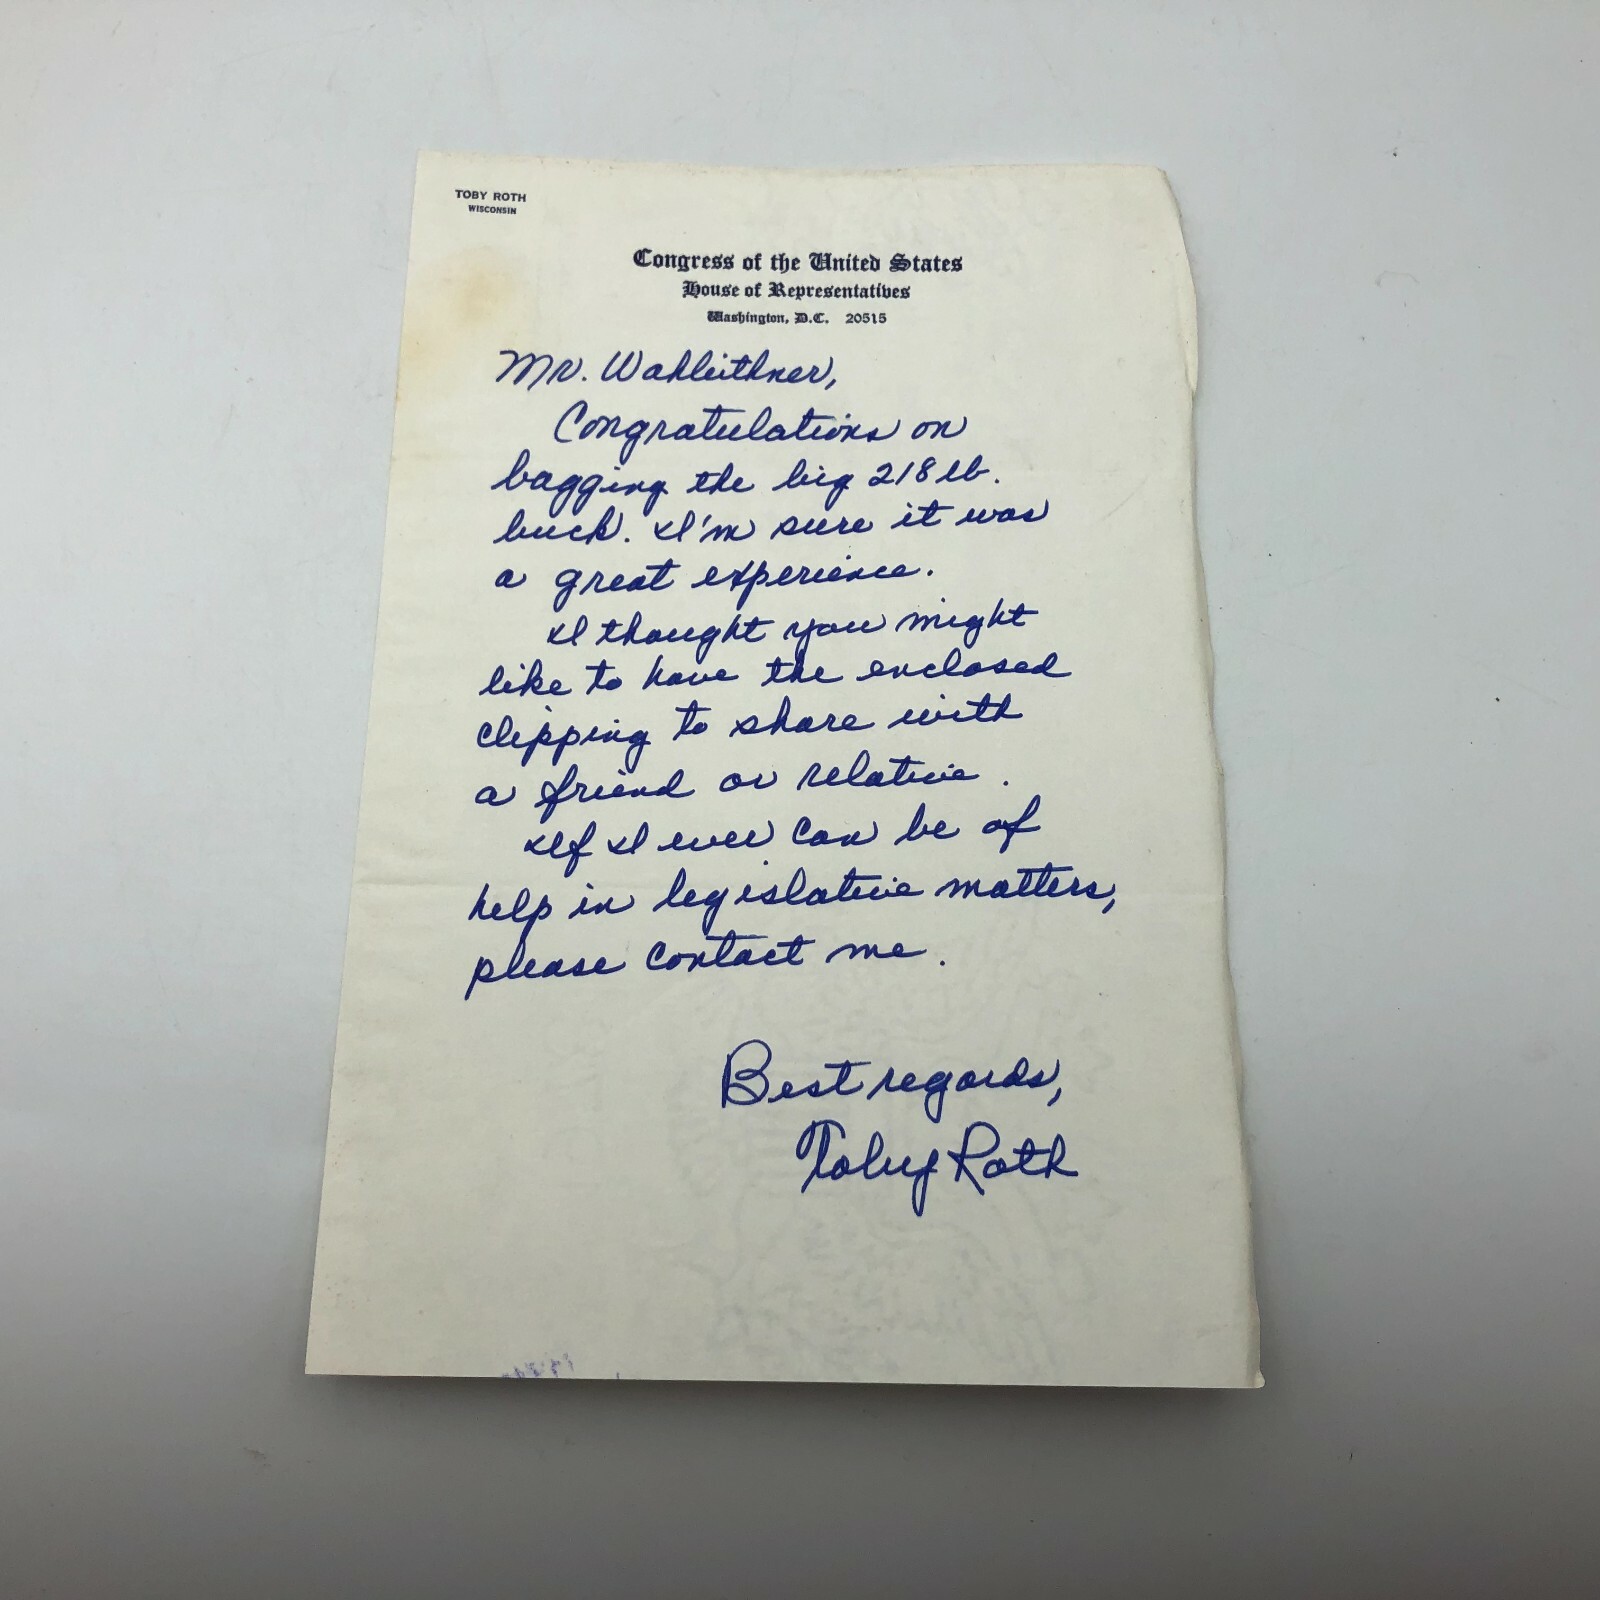 TOBY ROTH
WISCONSIN
Congress of the United States
House of Representatives
Washington, D.C. 20515
Mr. Wahleithner,
Congratulations on
bagging the big 218 lb.
buck. I'm sure it was
a great experience.
I thought you might
like to have the enclosed
clipping to share with
a friend or relative.
If I ever can be of
help in legislative matters,
please contact me.
Best regards,
Toby Roth